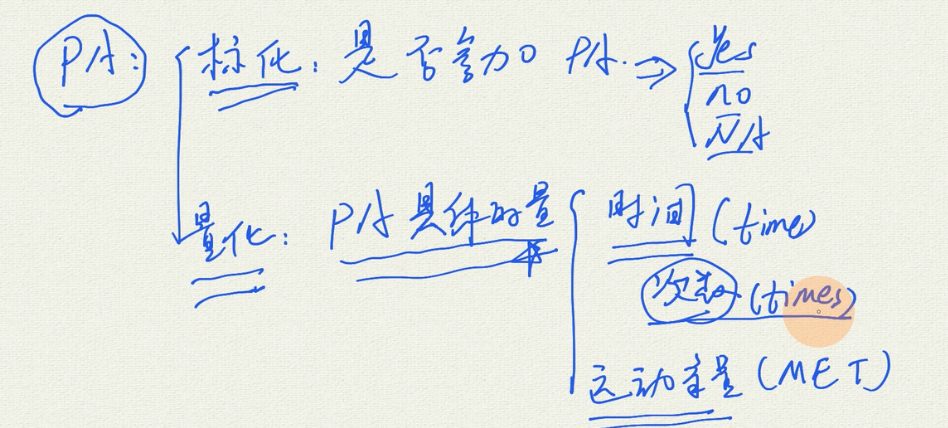 PA: 标化: 是否参加 PA. ⇒ Yes
no
NA
量化: PA 具体的量 时间 (time)
次数 (times)
运动当量 (MET)